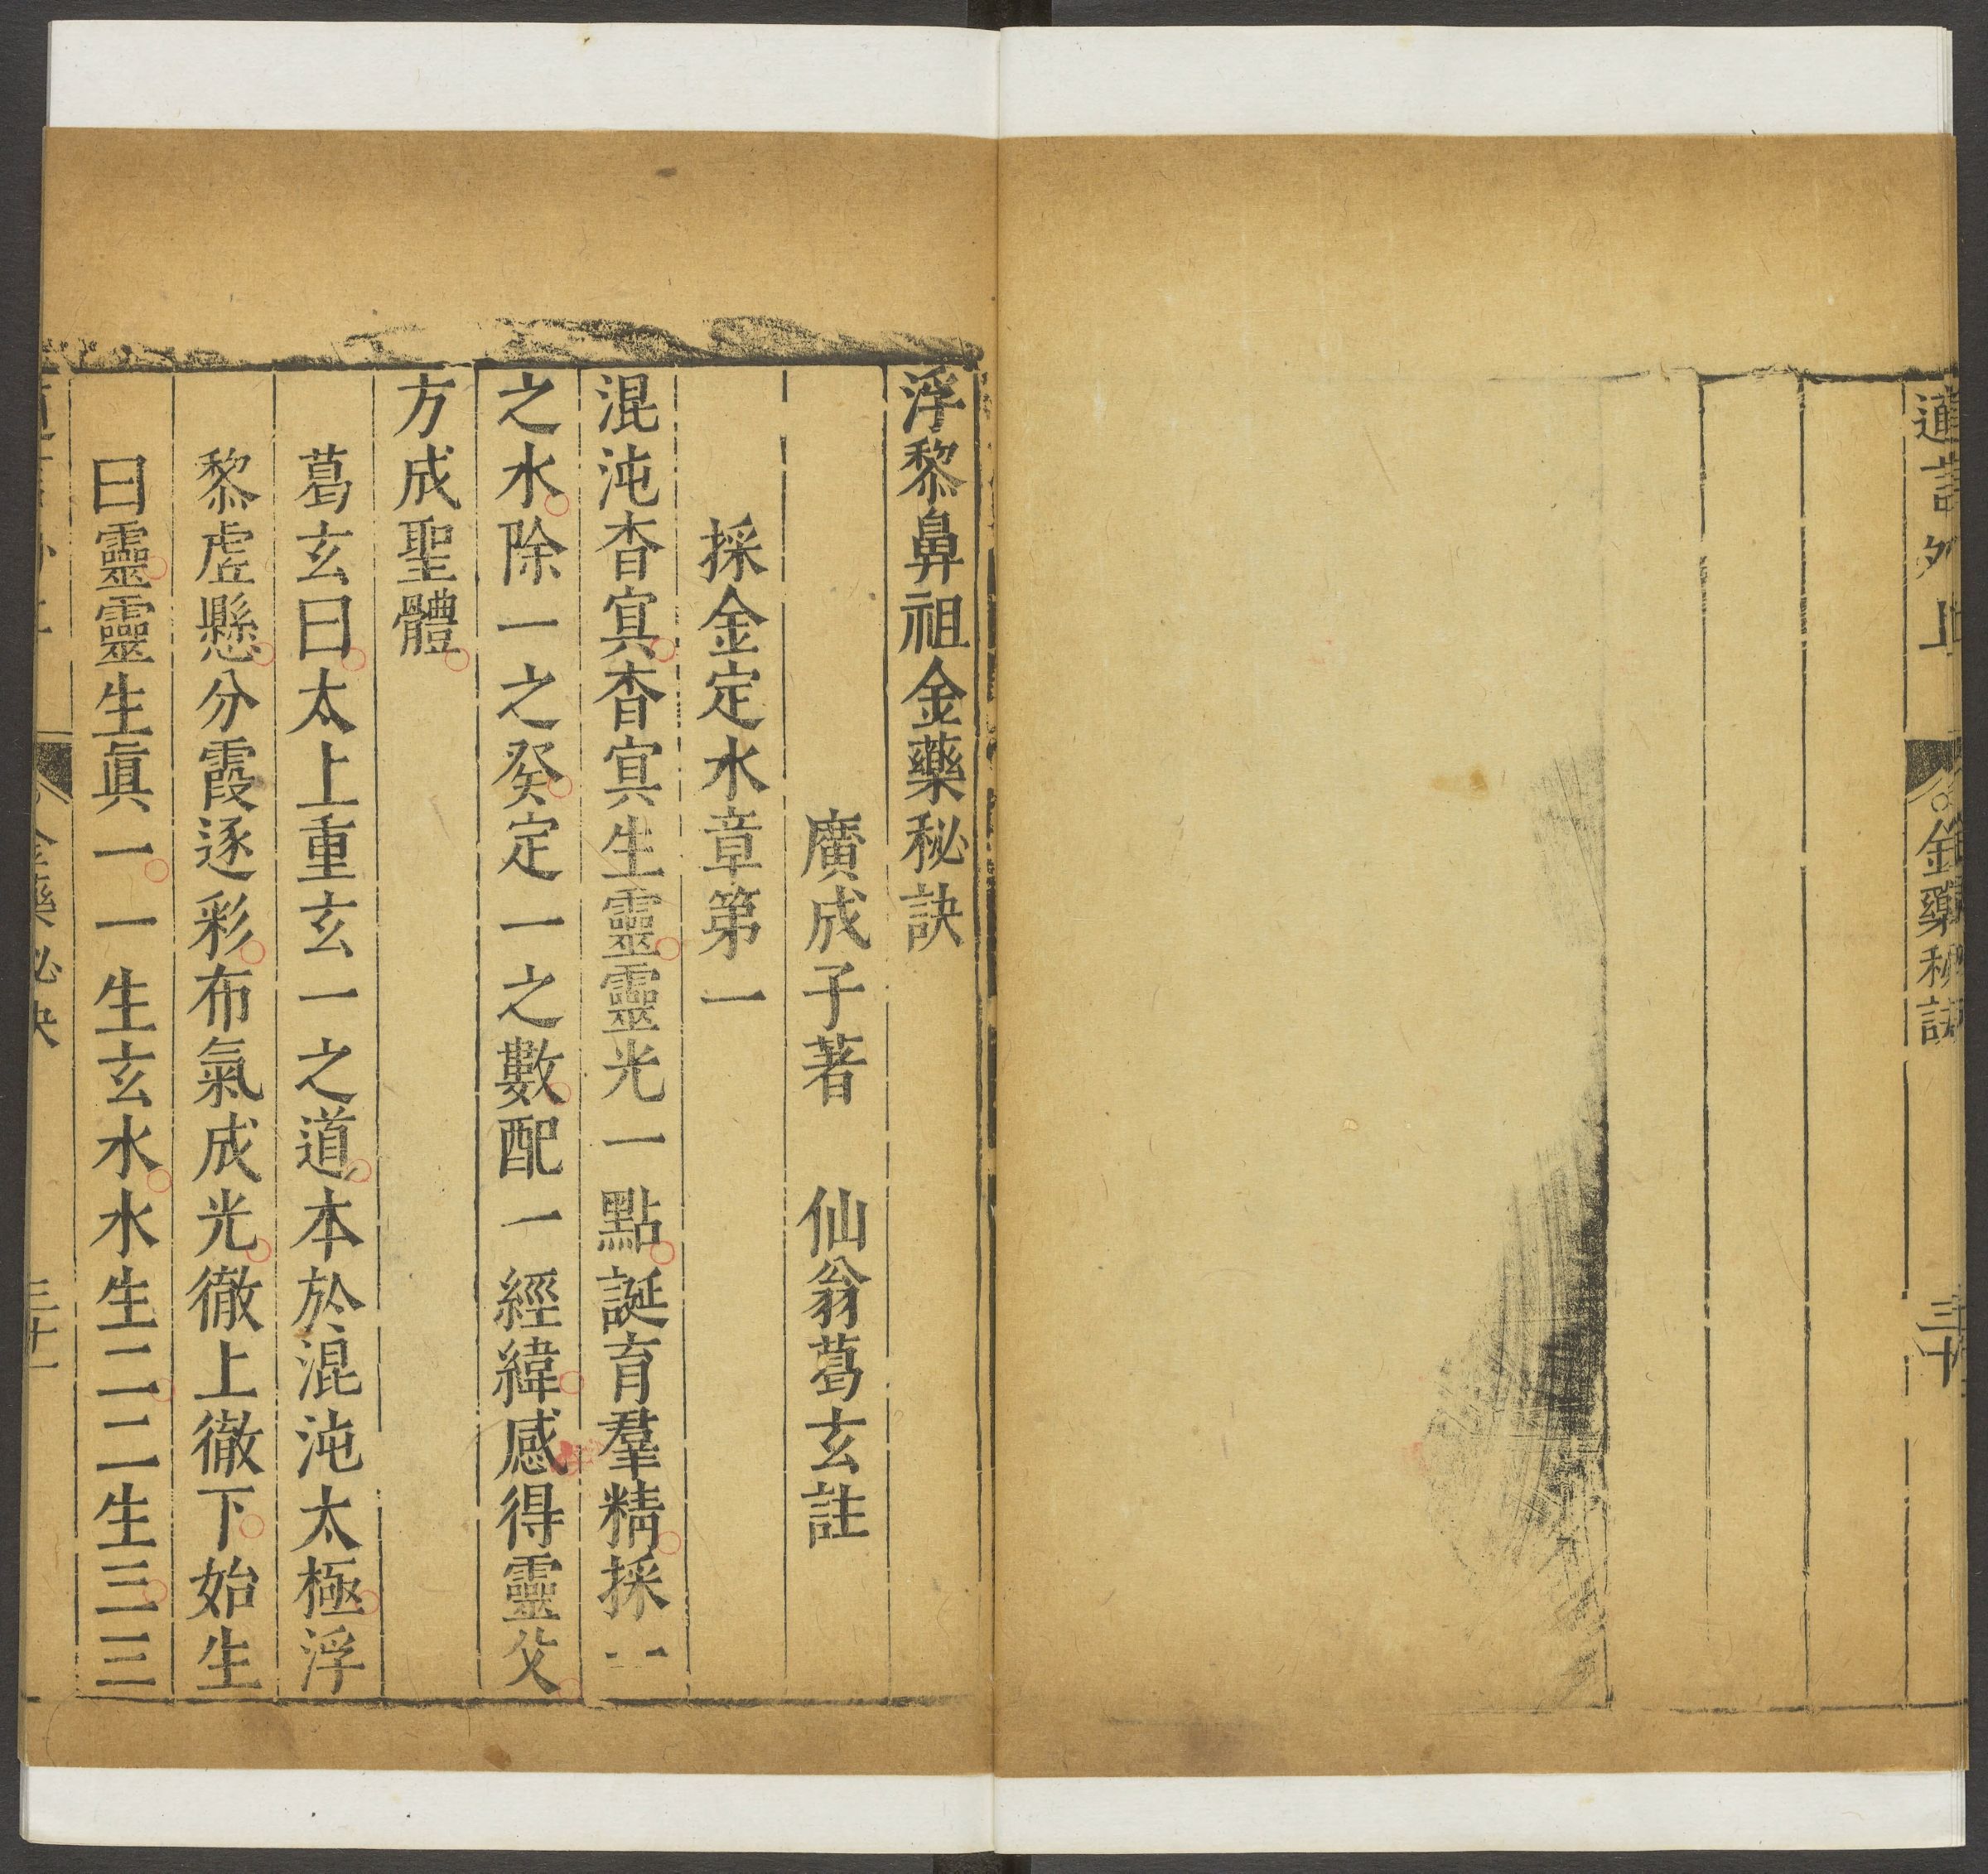 金藥秘訣
三十
浮黎鼻祖金藥秘訣
廣成子著　仙翁葛玄註
採金定水章第一
混沌杳冥杳冥生靈靈光一點誕育羣精採一
之水除一之癸定一之數配一經緯感得靈父
方成聖體
葛玄曰太上重玄一之道本於混沌太極浮
黎虛懸分霞逐彩布氣成光徹上徹下始生
曰靈靈生眞一一生玄水水生二二生三三
三十一